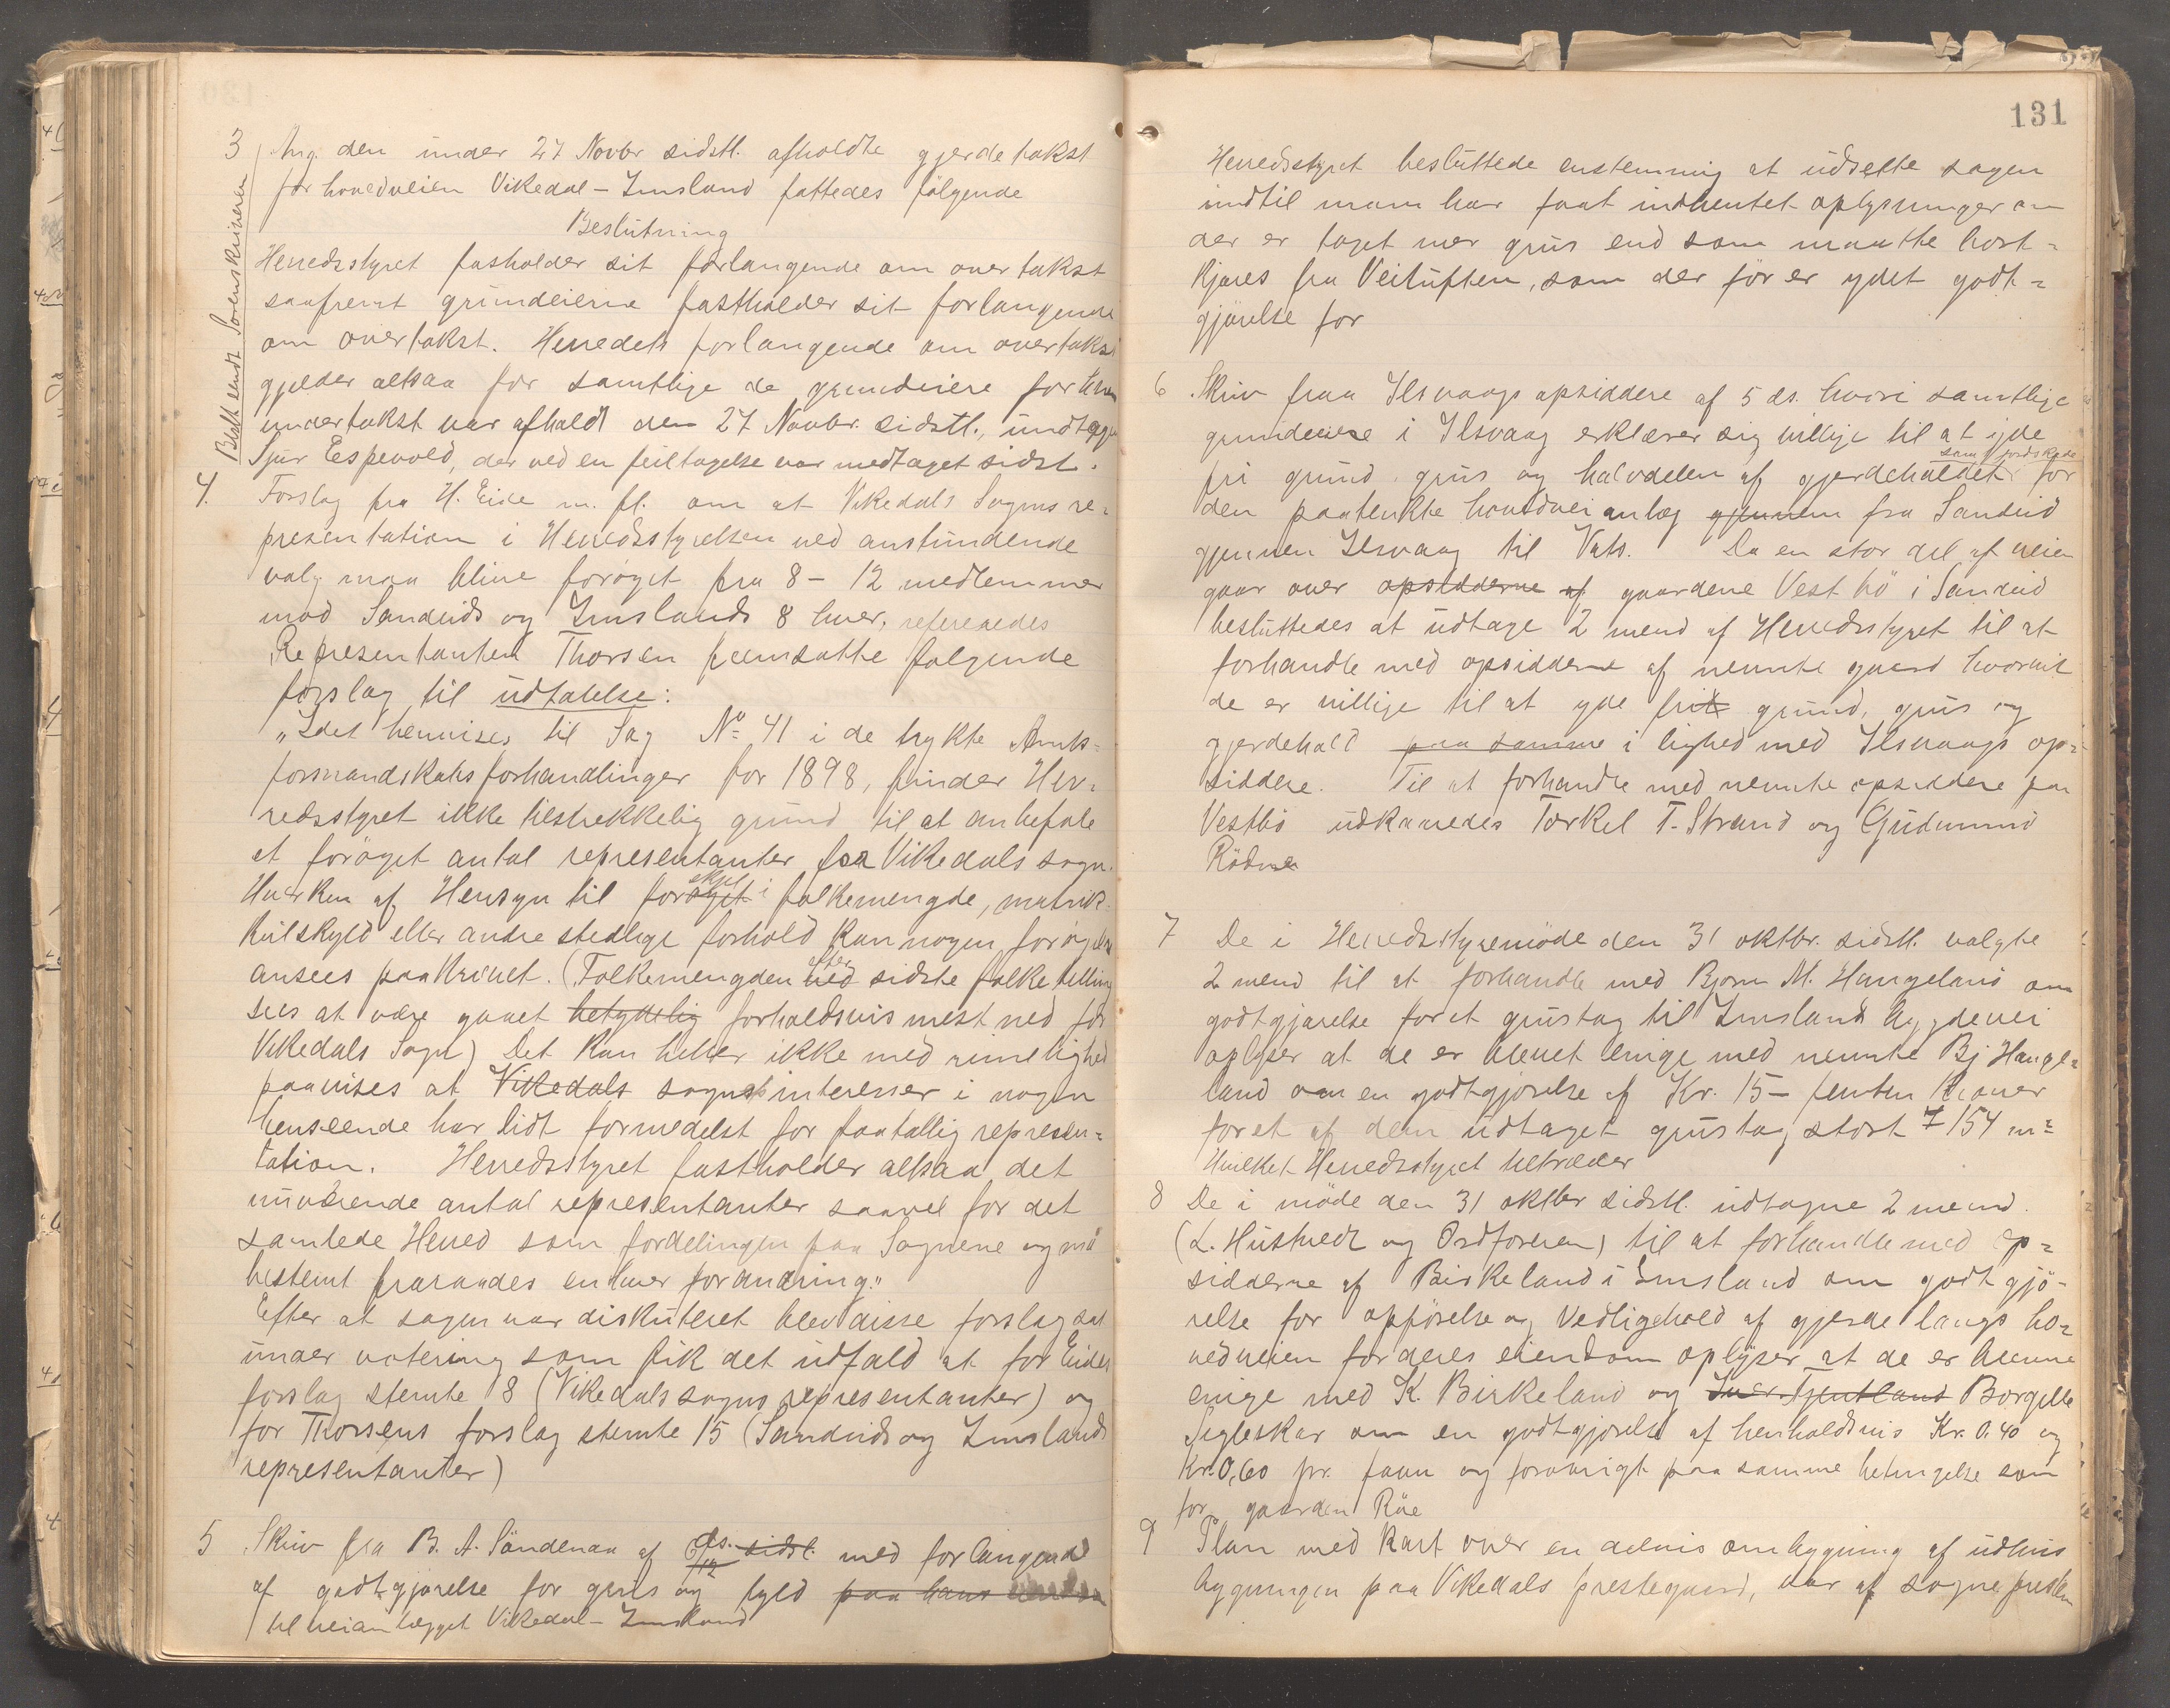 3 Ang. den under 27 Novbr sidstl. afholdte gjerdetakst
for hovedveien Vikedal - Imsland fattedes følgende
Beslutning
Herredsstyret fasholder sit forlangende om overtakst
saafremt grundeierne fastholder sit forlangende
om overtakst. Herredets forlangende om overtakst
gjelder altsaa for samtlige de grundeiere for hvem
undertakst var afholdt den 27 Novbr. sidstl., undtagen
Sjur Espevold, der ved en feiltagelse var medtaget sidst.
Sorenskriveren
4. Forslag fra H. Eide m. fl. om at Vikedals Sogns re-
presentation i Herredsstyrelsen ved anstundende
valg maa blive forøget fra 8 - 12 medlemmer
mod Sandeids og Imslands 8 hver, refereredes
Representanten Thorsen fremsatte følgende
forslag til udtalelse:
„Idet henvises til Sag No 41 i de trykte Amts-
formandskabsforhandlinger for 1898, finder Her-
redsstyret ikke tilstrekkelig grund til at anbefale
et forøget antal representanter fra Vikedals sogn.
Hverken af Hensyn til forskjel i folkemengde, matrik-
kulskyld eller andre stedlige forhold kan nogen forøgelse
ansees paakrevet. (Folkemengden efter ved sidste folketelling
sees at være gaaet betydelig forholdsvis mest ned for
Vikedals Sogn) Det kan heller ikke med rimelighed
paavises at Vikedals sogns interesser i nogen
henseende har lidt formedelst for faatallig represen-
tation. Herredsstyret fastholder altsaa det
nuværende antal representanter saavel for det
samlede Herred som fordelingen paa Sognene og maa
bestemt fraraades enhver forandring."
Efter at sagen var diskuteret blev disse forslag sat
under votering som fik det udfald at for Eides
forslag stemte 8 (Vikedals sogns representanter) og
for Thorsens forslag stemte 15 (Sandeids og Imslands
representanter)
5 Skriv fra B. A. Søndenaa af 6/12 ds. sidst. med forlangende
af godtgjørelse for grus og fyld paa hans
til veianlægget Vikedal - Imsland
131
Herredsstyret besluttede enstemmig at udsette sagen
indtil man har faat indhentet oplysninger om
der er taget mer grus end som maatte bort-
kjøres fra Veituften, som der før er ydet godt-
gjørelse for
6. Skriv fraa Ilsvaags opsiddere af 5 ds. hvori samtlige
grundeiere i Ilsvaag erklærer sig villige til at yde
fri grund, grus og halvdelen af gjerdeholdet som jordskade for
den paatenkte hovedveianlæg gjennem fra Sandeid
gjennem Ilsvaag til Vats. Da en stor del af veien
gaar over opsidderne af gaardene Vestbø i Sandeid
besluttedes at udtage 2 mend af Herredsstyret til at
forhandle med opsidderne af nevnte gaard hvorvidt
de er villige til at yde frit grund, grus og
gjerdehold paa samme i lighed med Ilsvaags op-
siddere. Til at forhandle med nevnte opsiddere paa
Vestbø udkaaredes Torkel T. Strand og Gudmund
Rødne
7 De i Herredsstyremøde den 31 oktbr. sidstl. valgte
2 mend til at forhandle med Bjørn M. Haugeland om
godtgjørelse for et grustag til Imsland bygdevei
oplyser at de er blevet enige med nevnte Bj Hauge-
land om en godtgjørelse af Kr. 15 - femten kroner
for et af dem udtaget grustag stort 154 m2
Hvilket Herredsstyret tiltræder
8 De i møde den 31 oktbr sidstl. udtagne 2 mend
(L. Hustvedt og Ordføreren) til at forhandle med op-
sidderne af Birkeland i Imsland om godtgjø-
relse for opførelse og Vedligehold af gjerde langs ho-
vedveien for deres eiendom oplyser at de er blevne
enige med K. Birkeland og Iver Tjentland Borgille
Sigleskar om en godtgjørelse af henholdsvis Kr. 0.40 og
Kr. 0,60 pr. favn og forøvrigt paa samme betingelse som
for gaarden Røe
9 Plan med kart over en delvis ombygning af udhus
bygningen paa Vikedals prestegaard, var af sognepresten